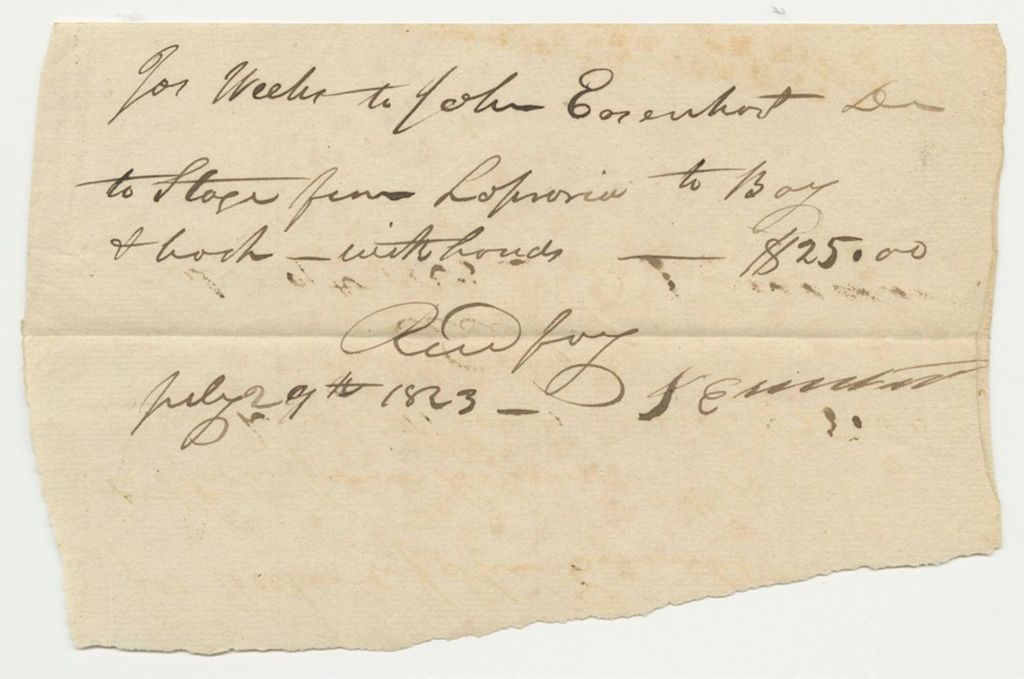 Jos Weeks to John Eosenhort Dr
to Stage from to Bay
& back – with hands — $25.00
Recd pay
July 29th 1823 –